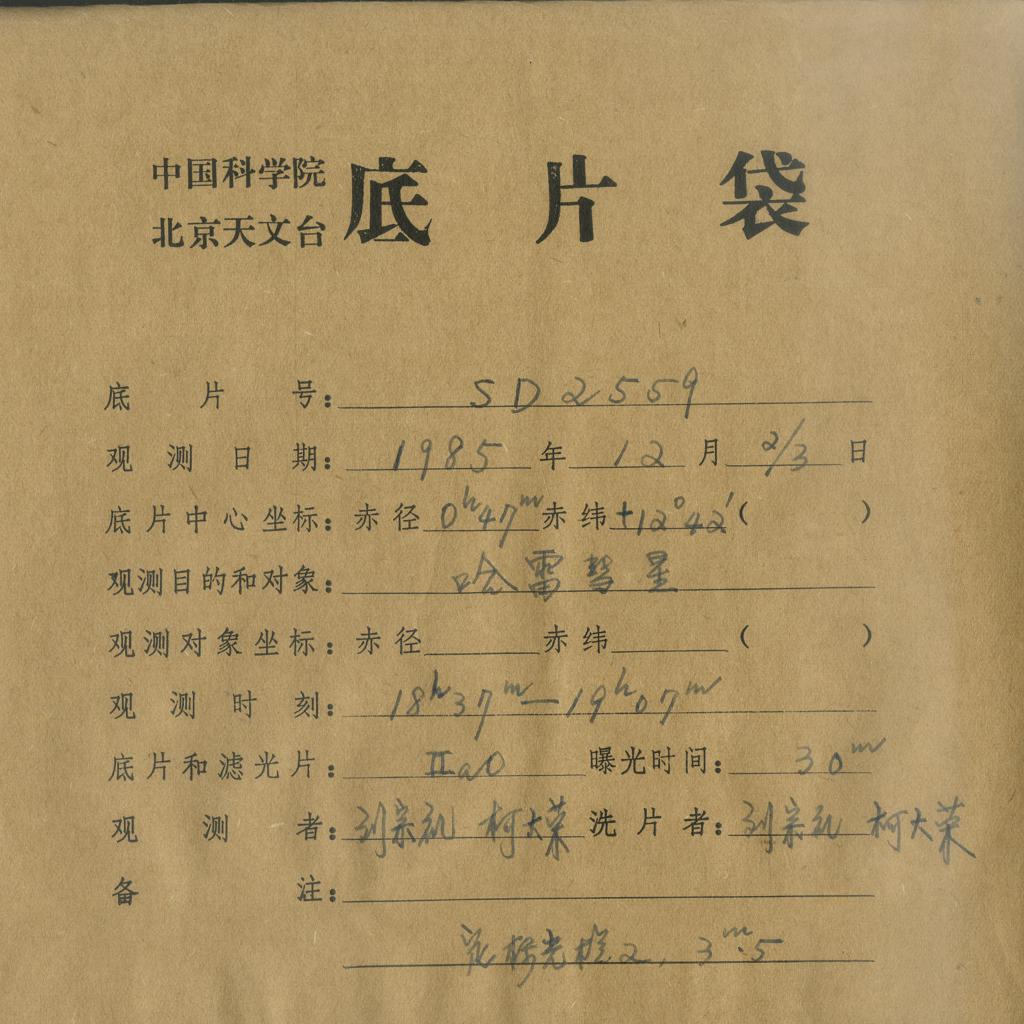 中国科学院
北京天文台
底片袋
底片号: SD2559
观测日期: 1985年12月2/3日
底片中心坐标: 赤径 0ʰ47ᵐ 赤纬 +12°42′ ( )
观测目的和对象: 哈雷彗星
观测对象坐标: 赤径 赤纬 ( )
观测时刻: 18ʰ37ᵐ—19ʰ07ᵐ
底片和滤光片: ⅡaO 曝光时间: 30ᵐ
观测者: 刘宗礼 柯大荣 洗片者: 刘宗礼 柯大荣
备注:
光 2, 3ᵐ.5